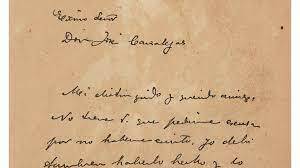 Excmo Señor
Don José Canalejas
Mi distinguido y querido amigo,
No tiene V. que pedirme excusa
por no haberme escrito, yo debí
también haberlo hecho, y lo